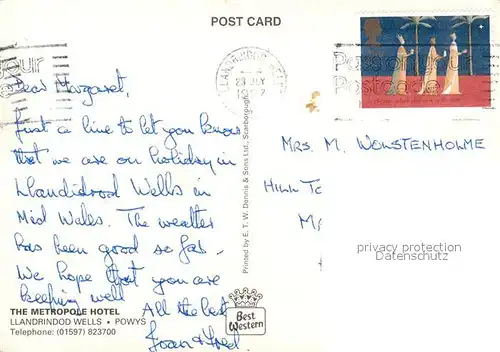 POST CARD
LLANDRINDOD WELLS
Pass on your
Postcode
Dear Margaret,
Just a line to let you know
that we are on holiday in
Llandidrod Wells in
Mid Wales. The weather
has been good so far.
We hope that you are
keeping well
All the best
Joan & Fred
THE METROPOLE HOTEL
LLANDRINDOD WELLS • POWYS
Telephone: (01597) 823700
Printed by E. T. W. Dennis & Sons Ltd., Scarborough
Best
Western
MRS. M. WOLSTENHOLME
HILL
privacy protection
Datenschutz